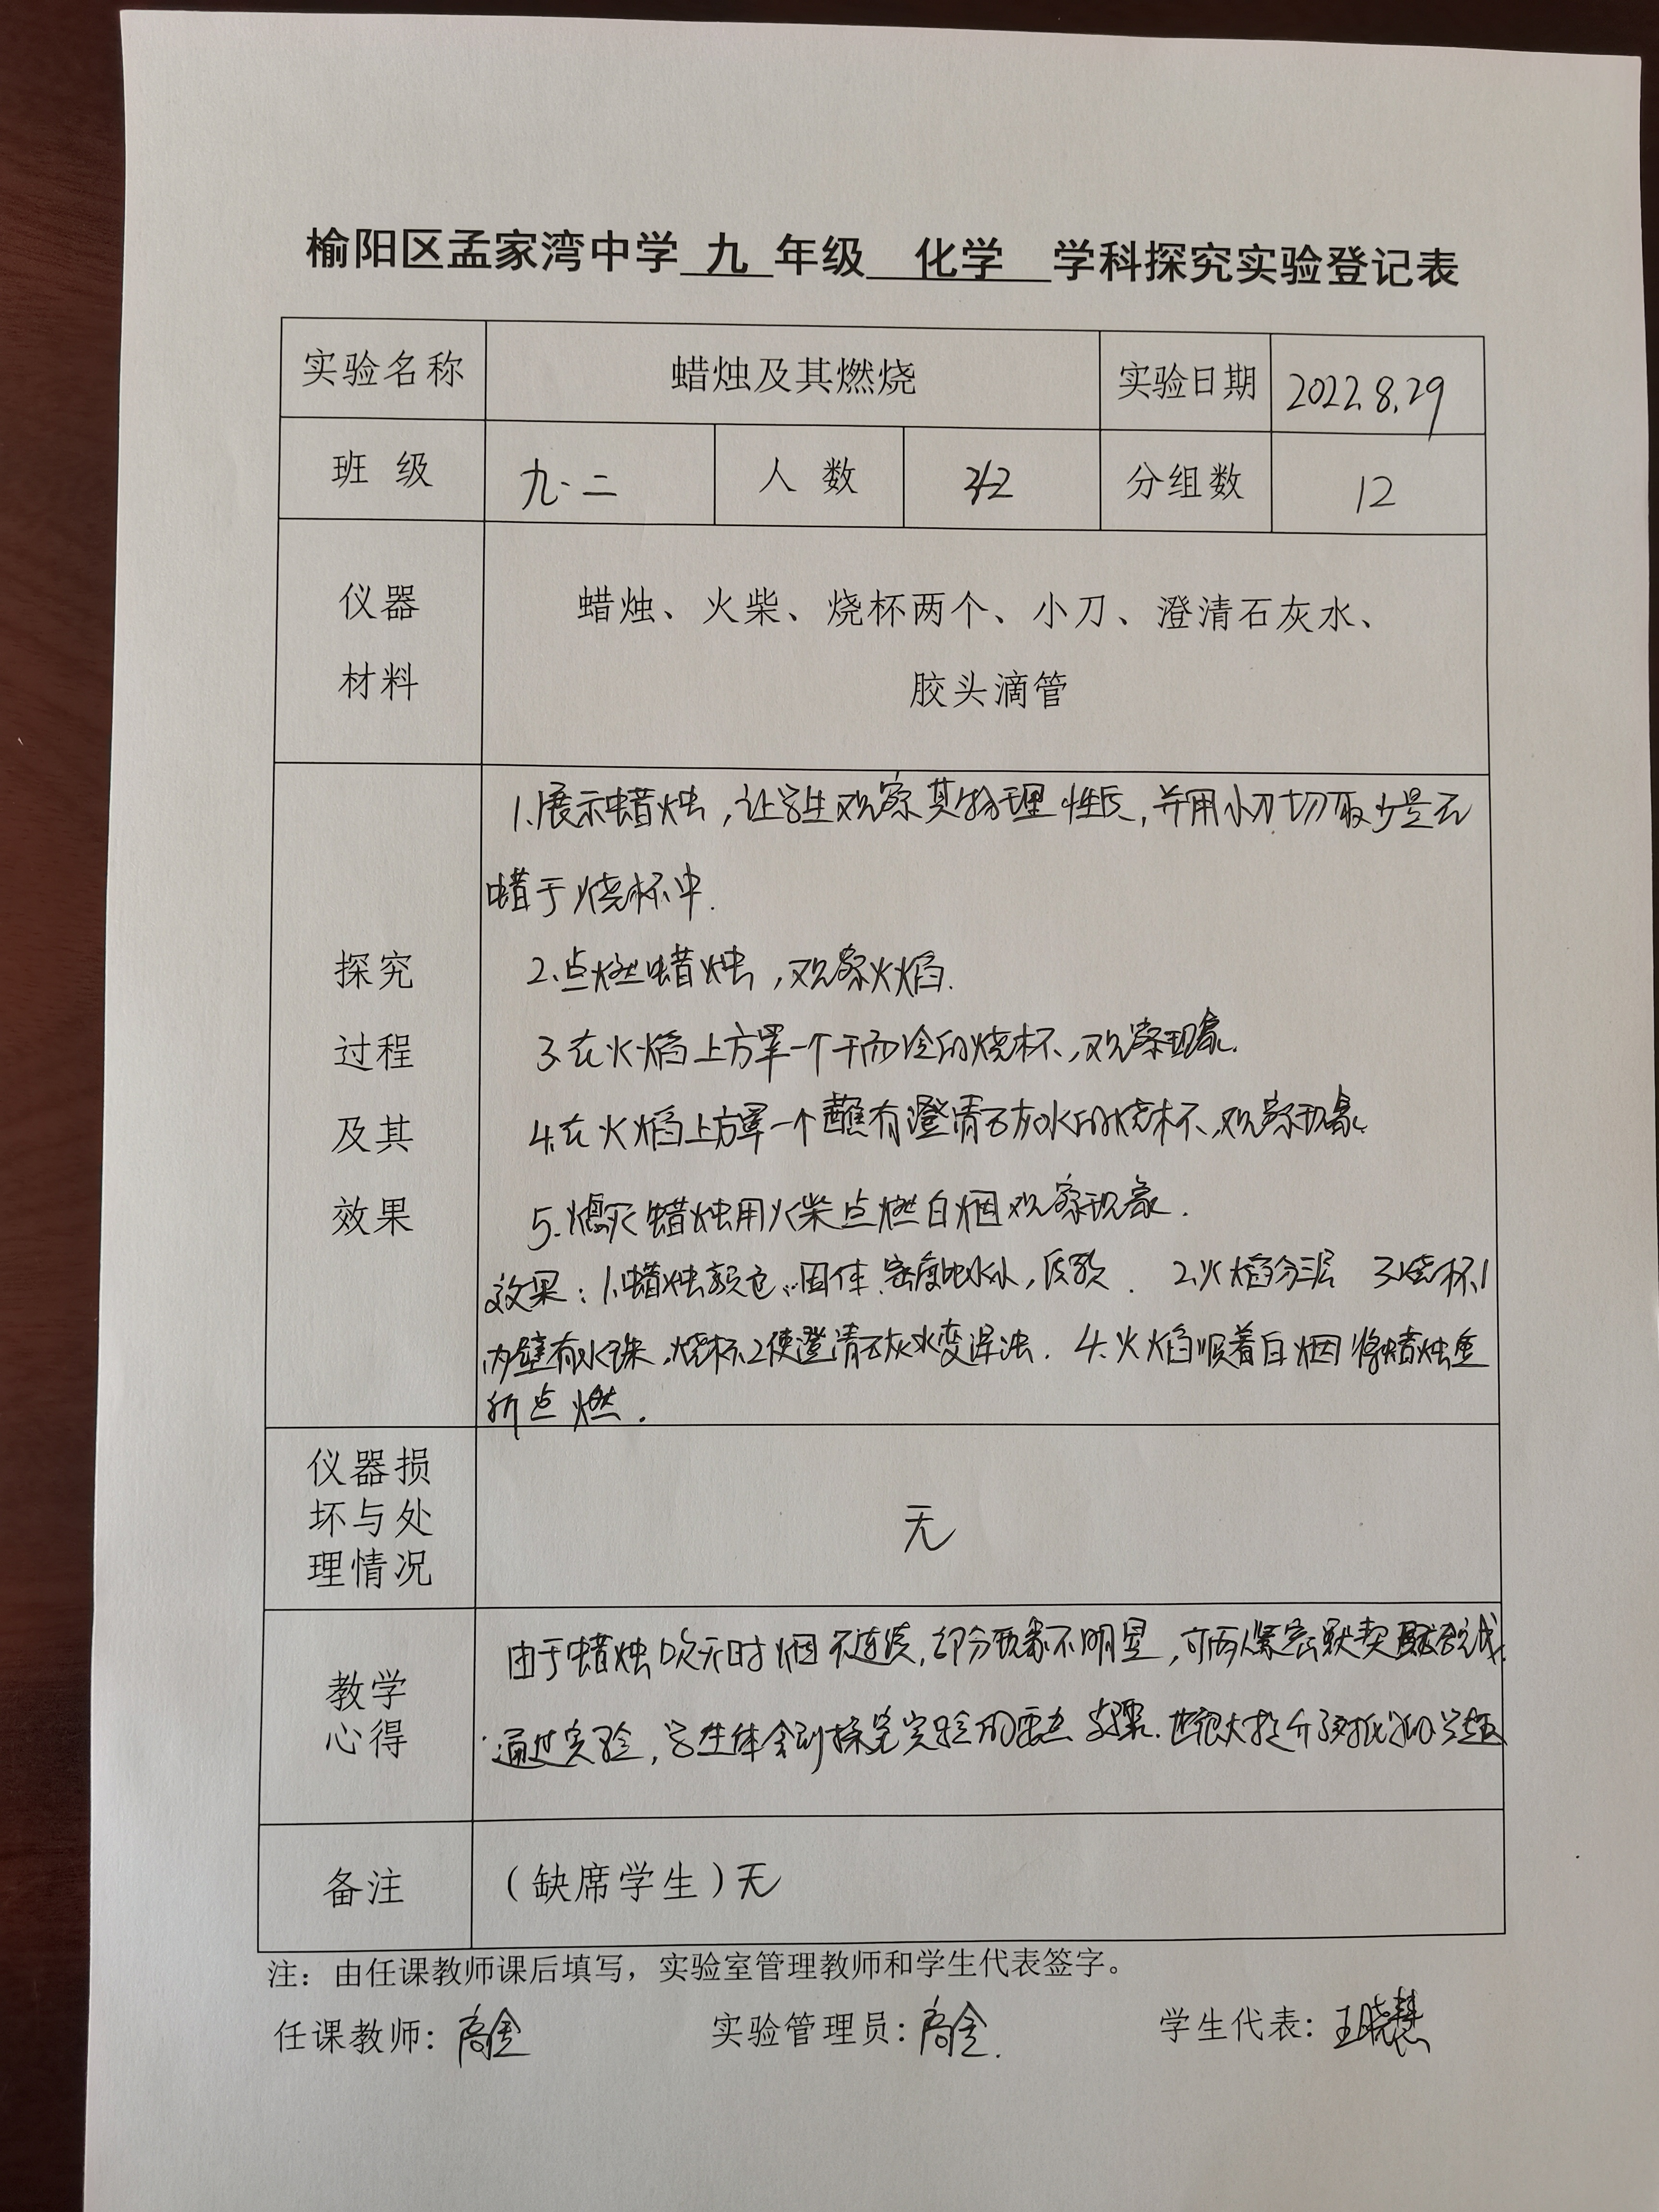 榆阳区孟家湾中学 九 年级 化学 学科探究实验登记表
实验名称 蜡烛及其燃烧 实验日期 2022.8.29
班 级 九.二 人 数 42 分组数 12
仪器
材料
蜡烛、火柴、烧杯两个、小刀、澄清石灰水、
胶头滴管
探究
过程
及其
效果
1.展示蜡烛,让学生观察其物理性质,并用小刀切取少量石
蜡于烧杯中.
2.点燃蜡烛,观察火焰.
3.在火焰上方罩一个干而冷的烧杯,观察现象.
4.在火焰上方罩一个蘸有澄清石灰水的烧杯,观察现象.
5.熄灭蜡烛用火柴点燃白烟观察现象.
效果:1.蜡烛颜色、固体.密度比水小,质软. 2.火焰分三层 3.烧杯1
内壁有水珠,烧杯2使澄清石灰水变浑浊. 4.火焰顺着白烟将蜡烛重
新点燃.
仪器损
坏与处
理情况
无
教学
心得
由于蜡烛吹灭时烟不连续,部分现象不明显,可两人紧密默契
通过实验,学生体会到探究实验的重点步骤.也很大提升了对化学的
备注 (缺席学生)无
注：由任课教师课后填写，实验室管理教师和学生代表签字。
任课教师: 实验管理员: 学生代表: 王晓慧